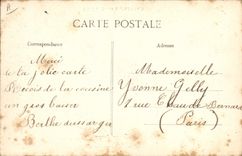 CARTE POSTALE
Correspondance
Adresse
Merci
de ta jolie carte
Reçois de ta cousine
un gros baiser
Berthe
Mademoiselle
Yvonne Gelly
1 rue Claude Bernard
(Paris)